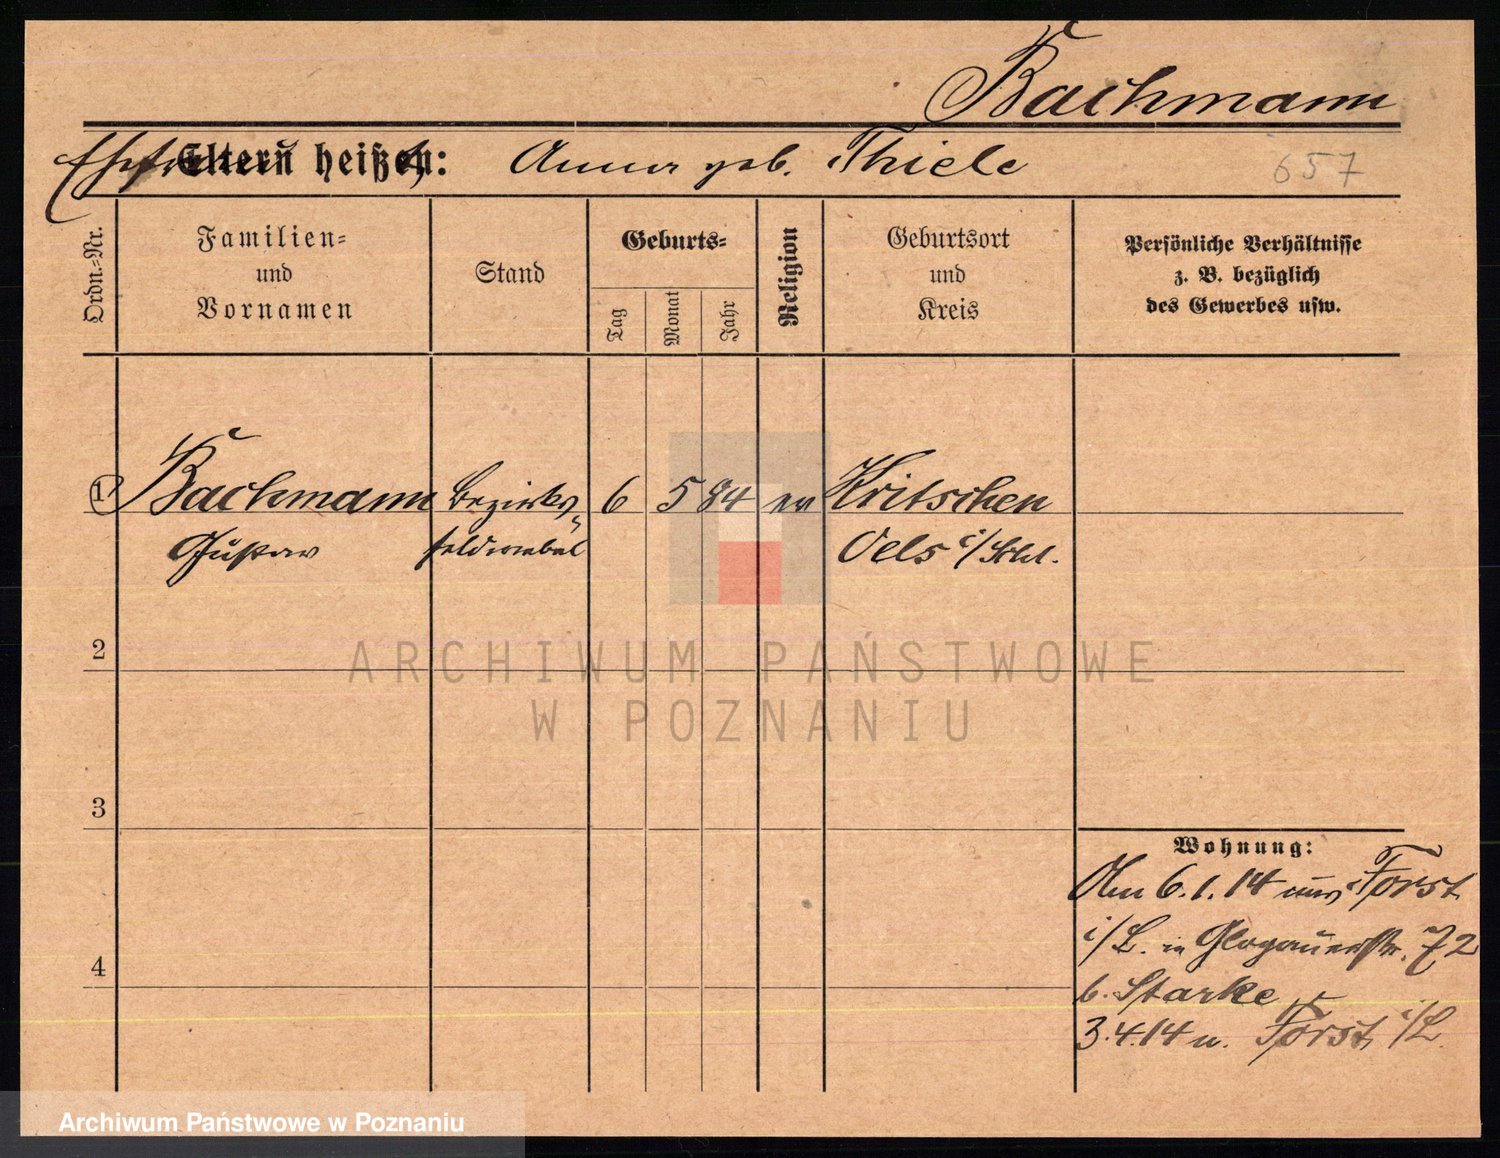 Bachmann
Eltern heißen: Anna geb. Thiele
657
Ordn.=Nr.
Familien=
und
Vornamen
Stand
Geburts=
Tag
Monat
Jahr
Religion
Geburtsort
und
Kreis
Persönliche Verhältnisse
z. B. bezüglich
des Gewerbes usw.
1 Bachmann Bezirks= 6 5 84 ev Kritschen
Gustav feldwebel Oels i/Schl.
2
3
4
Wohnung:
Am 6.1.14 Forst
i/L. Glogauerstr. 72
b. Starke
3.4.14 n. Forst i/L.
ARCHIWUM PAŃSTWOWE
W POZNANIU
Archiwum Państwowe w Poznaniu